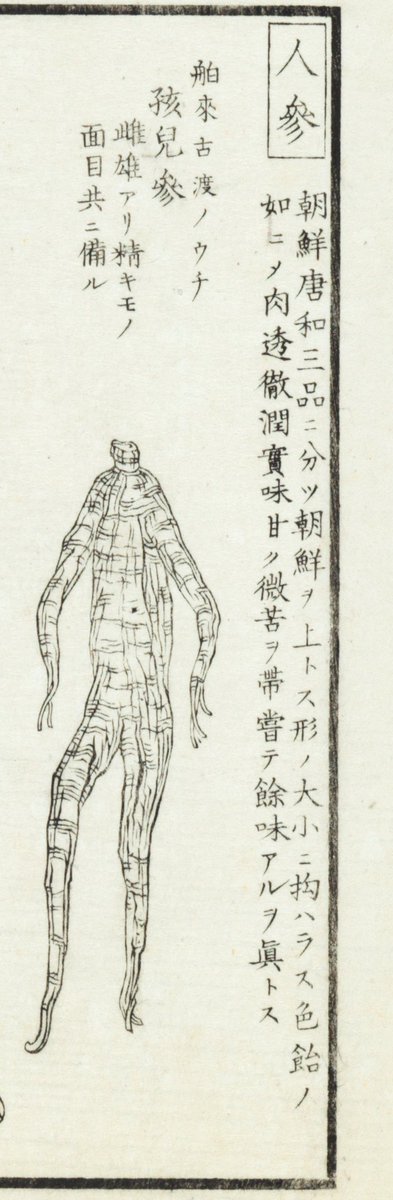 人參
朝鮮唐和三品ニ分ツ朝鮮ヲ上トス形ノ大小ニ拘ハラス色飴ノ
如ニメ肉透徹潤實味甘ク微苦ヲ帶嘗テ餘味アルヲ眞トス
舶來古渡ノウチ
孩兒參
雌雄アリ精キモノ
面目共ニ備ル